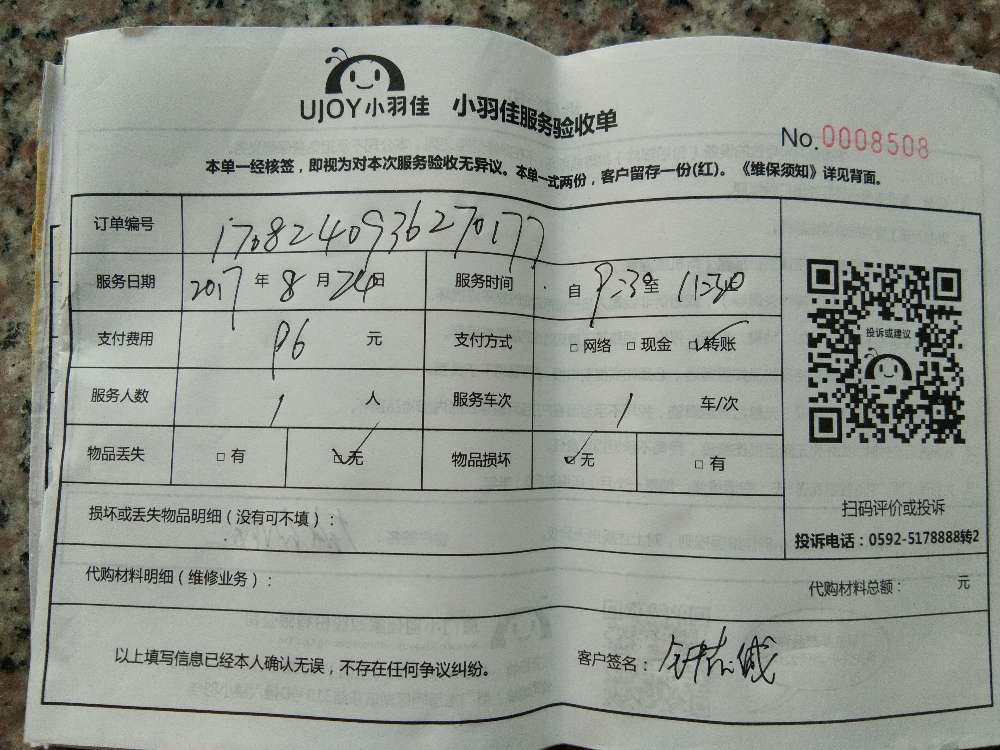 UJOY小羽佳 小羽佳服务验收单
No.0008508
本单一经核签，即视为对本次服务验收无异议。本单一式两份，客户留存一份(红)。《维保须知》详见背面。
订单编号 1708240936270177
服务日期 2017 年 8 月 24 日 服务时间 自 9:30 至 11:30
支付费用 96 元 支付方式 □网络 □现金 ☑转账
服务人数 1 人 服务车次 1 车/次
物品丢失 □有 ☑无 物品损坏 ☑无 □有
损坏或丢失物品明细（没有可不填）：
代购材料明细（维修业务）： 代购材料总额： 元
以上填写信息已经本人确认无误，不存在任何争议纠纷。 客户签名：
投诉或建议
扫码评价或投诉
投诉电话：0592-5178888转2